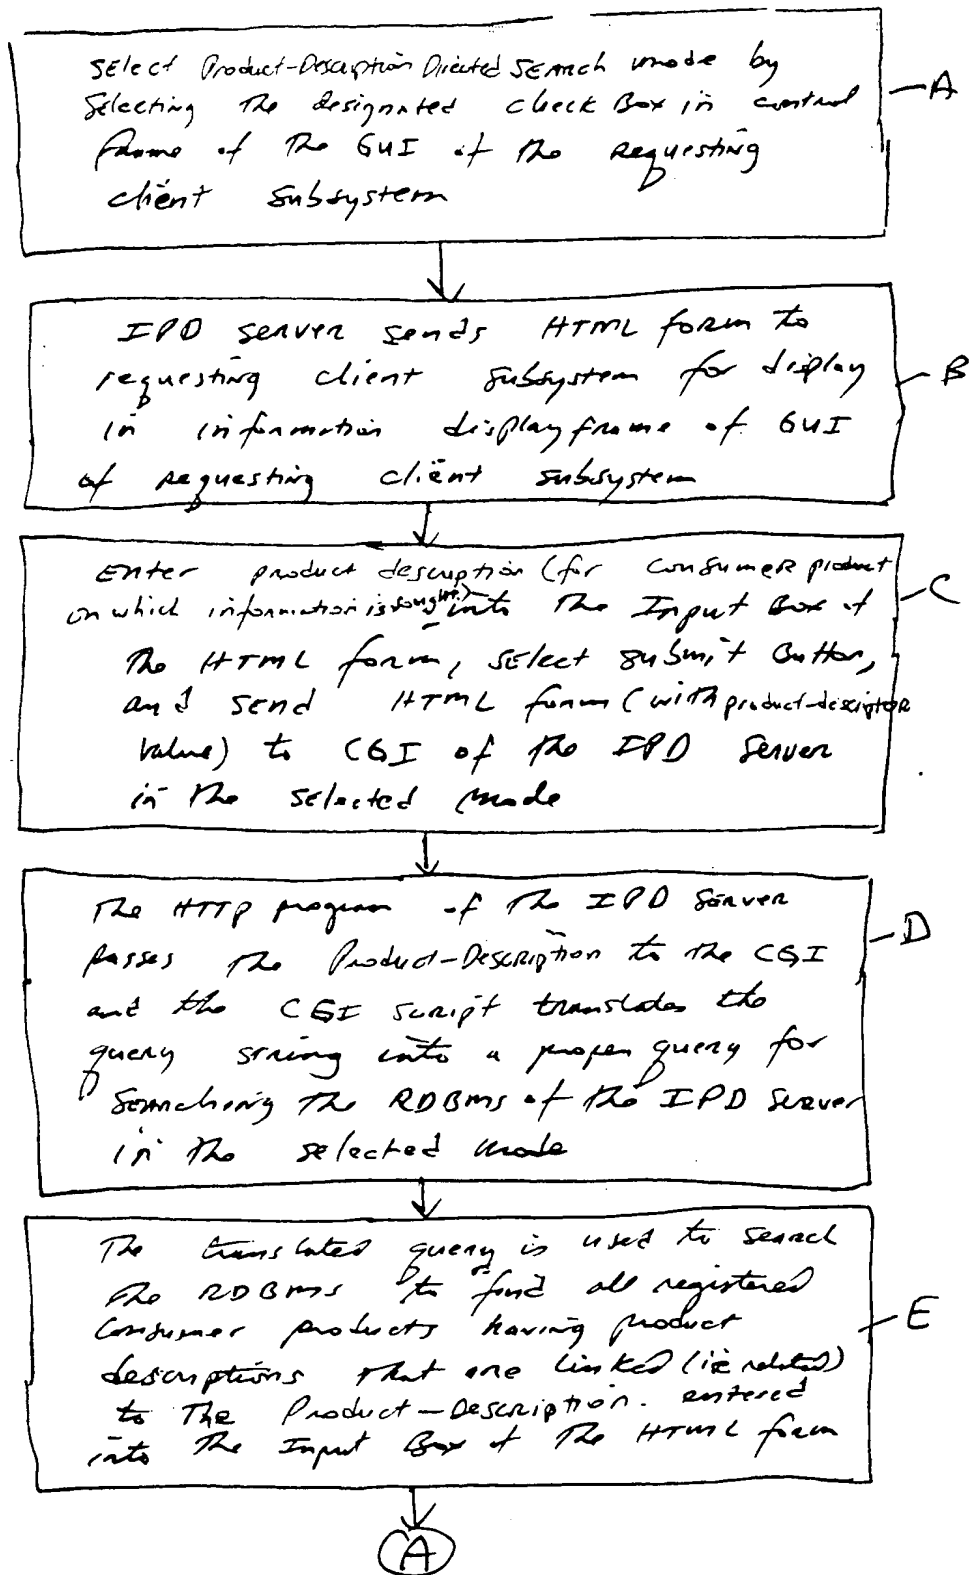 Select Product-Description Directed Search mode by
Selecting The designated check Box in control
frame of The GUI of The requesting
client subsystem
A
IPD server sends HTML form to
requesting client subsystem for display
in information display frame of GUI
of requesting client subsystem
B
Enter product description (for consumer product
on which information is sought) into The Input Box of
The HTML form, select submit Button,
and send HTML form (with product-descriptor
value) to CGI of The IPD Server
in The selected mode
C
The HTTP program of The IPD Server
passes The Product-Description to The CGI
and the CGI script translates the
query string into a proper query for
searching The RDBMS of the IPD Server
in The selected mode
D
The translated query is used to search
The RDBMS to find all registered
Consumer products having product
descriptions that are linked (ie related)
to The Product-Description. entered
into The Input Box of The HTML form
E
A